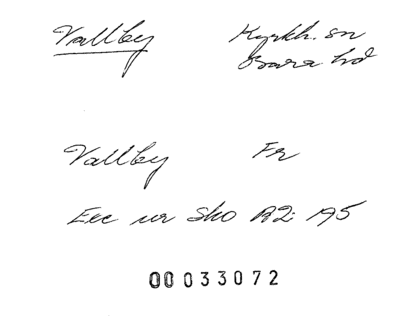 Vallby Kyrkh. sn
Bara hd
Vallby Fr
Exc ur Sko B2: 195
00033072